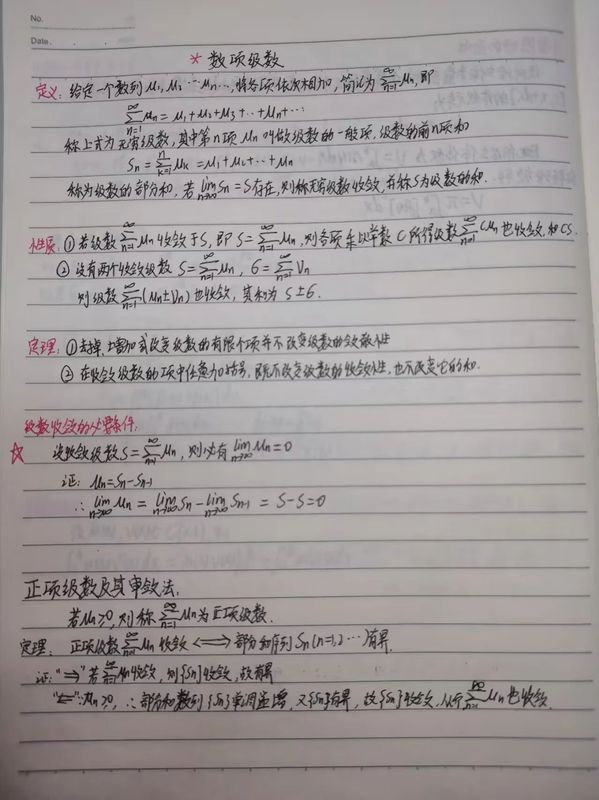 No.
Date.
* 数项级数
定义: 给定一个数列 u₁, u₂ … uₙ …, 将各项依次相加, 简记为 ∑_{n=1}^{∞} uₙ, 即
∑_{n=1}^{∞} uₙ = u₁ + u₂ + u₃ + … + uₙ + …
称上式为无穷级数, 其中第 n 项 uₙ 叫做级数的一般项, 级数的前 n 项和
Sₙ = ∑_{k=1}^{n} uₖ = u₁ + u₂ + … + uₙ
称为级数的部分和, 若 lim_{n→∞} Sₙ = S 存在, 则称无穷级数收敛, 并称 S 为级数的和.
性质 ① 若级数 ∑_{n=1}^{∞} uₙ 收敛于 S, 即 S = ∑_{n=1}^{∞} uₙ, 则各项乘以常数 C 所得级数 ∑_{n=1}^{∞} Cuₙ 也收敛, 和 CS.
② 设有两个收敛级数 S = ∑_{n=1}^{∞} uₙ, 6 = ∑_{n=1}^{∞} vₙ
则级数 ∑_{n=1}^{∞} (uₙ ± vₙ) 也收敛, 其和为 S ± 6.
定理: ① 去掉, 增加或改变级数的有限个项并不改变级数的敛散性
② 在收敛级数的项中任意加括号, 既不改变级数的收敛性, 也不改变它的和.
级数收敛的必要条件:
☆ 设收敛级数 S = ∑_{n=1}^{∞} uₙ, 则必有 lim_{n→∞} uₙ = 0
证: uₙ = Sₙ - Sₙ₋₁
∴ lim_{n→∞} uₙ = lim_{n→∞} Sₙ - lim_{n→∞} Sₙ₋₁ = S - S = 0
正项级数及其审敛法.
若 uₙ ≥ 0, 则称 ∑_{n=1}^{∞} uₙ 为正项级数.
定理: 正项级数 ∑_{n=1}^{∞} uₙ 收敛 ⟺ 部分和序列 Sₙ (n=1,2…) 有界.
证: "⇒" 若 ∑_{n=1}^{∞} uₙ 收敛, 则 {Sₙ} 收敛, 故有界
"⇐" ∵ uₙ ≥ 0, ∴ 部分和数列 {Sₙ} 单调递增, 又 {Sₙ} 有界, 故 {Sₙ} 收敛, 从而 ∑_{n=1}^{∞} uₙ 也收敛.